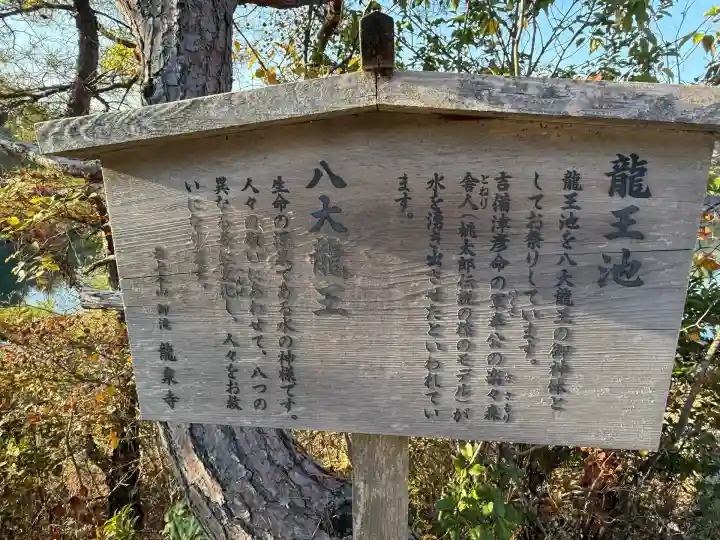 龍王池
龍王池を八大龍王の御神体と
してお祭りしています。
吉備津彦命の
舎人(桃太郎伝説の猿のモデル)が
とねり
水を湧き出させたといわれてい
ます。
八大龍王
生命の源である水の神様です。
人々の願いにあわせて、八つの
異なる姿に変化し、人々をお救
いになります。
龍泉寺